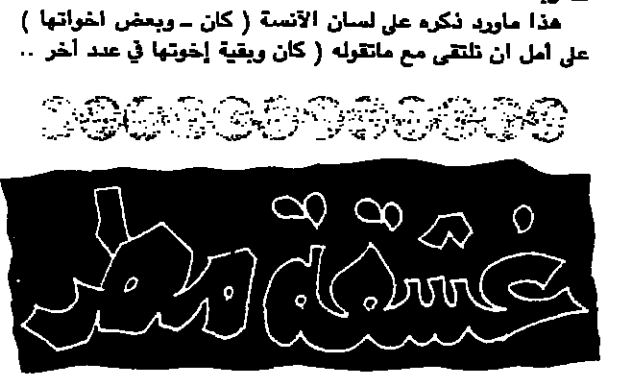 هذا ماورد ذكره على لسان الآنسة ( كان ــ وبعض اخواتها )
على أمل ان نلتقى مع ماتقوله ( كان وبقية إخوتها في عدد أخر ..
غشقة مطر